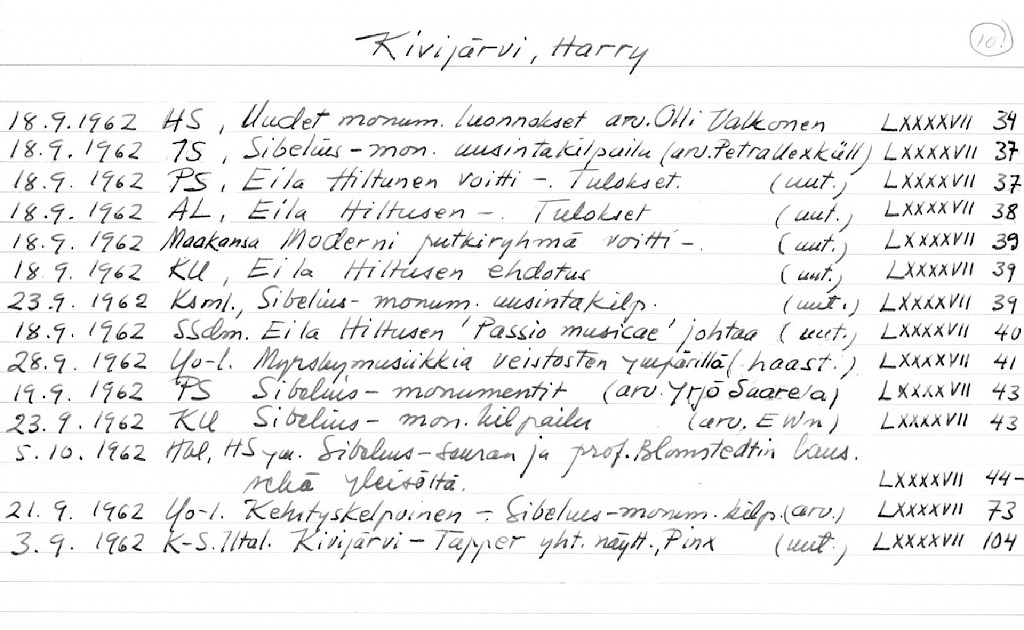 Kivijärvi, Harry
10.
18.9.1962 HS, Uudet monum. luonnokset arv. Olli Valkonen LXXXXVII 34
18.9.1962 IS, Sibelius-mon. uusintakilpailu (arv. Petra Uexküll) LXXXXVII 37
18.9.1962 PS, Eila Hiltunen voitti -. Tulokset. (uut.) LXXXXVII 37
18.9.1962 AL, Eila Hiltusen -. Tulokset (uut.) LXXXXVII 38
18.9.1962 Maakansa Moderni putkiryhmä voitti -. (uut.) LXXXXVII 39
18.9.1962 KU, Eila Hiltusen ehdotus (uut.) LXXXXVII 39
23.9.1962 Ksml., Sibelius-monum. uusintakilp. (uut.) LXXXXVII 39
18.9.1962 SSdm. Eila Hiltusen 'Passio musicae' johtaa (uut.) LXXXXVII 40
28.9.1962 Yo-l. Myrskymusiikkia veistosten ympärillä (haast.) LXXXXVII 41
19.9.1962 PS Sibelius-monumentit (arv. Yrjö Saarela) LXXXXVII 43
23.9.1962 KU Sibelius-mon. kilpailu (arv. EWn) LXXXXVII 43
5.10.1962 Hbl, HS ym. Sibelius-seuran ja prof. Blomstedtin laus.
sekä yleisöltä. LXXXXVII 44-
21.9.1962 Yo-l. Kehityskelpoinen -. Sibelius-monum. kilp. (arv.) LXXXXVII 73
3.9.1962 K-S. Iltal. Kivijärvi-Tapper yht. näytt., Pinx (uut.) LXXXXVII 104